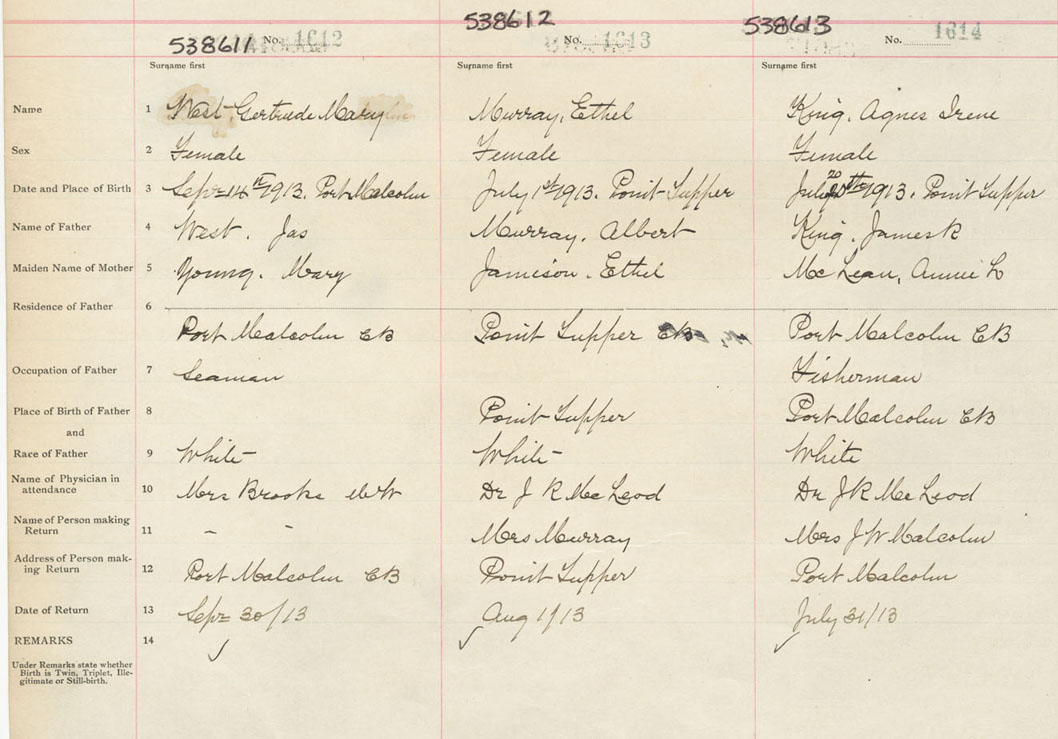 538611 No. 1612
538612 No. 1613
538613 No. 1614
Surname first Surname first Surname first
Name 1 West, Gertrude Mary Murray, Ethel King, Agnes Irene
Sex 2 Female Female Female
Date and Place of Birth 3 Sept 14th 1913. Port Malcolm July 1st 1913. Point Tupper July 20th 1913. Point Tupper
Name of Father 4 West. Jas Murray, Albert King. James R
Maiden Name of Mother 5 Young. Mary Jamison. Ethel Mc Lean, Annie L
Residence of Father 6
Port Malcolm CB Point Tupper CB Port Malcolm CB
Occupation of Father 7 Seaman Fisherman
Place of Birth of Father 8 Point Tupper Port Malcolm CB
and
Race of Father 9 White White White
Name of Physician in
attendance 10 Mrs Brooks Dr J R Mc Leod Dr J R Mc Leod
Name of Person making
Return 11 - - Mrs Murray Mrs J W Malcolm
Address of Person mak-
ing Return 12 Port Malcolm CB Point Tupper Port Malcolm
Date of Return 13 Sept 30/13 Aug 1/13 July 31/13
REMARKS 14 ✓ ✓ ✓
Under Remarks state whether
Birth is Twin, Triplet, Ille-
gitimate or Still-birth.